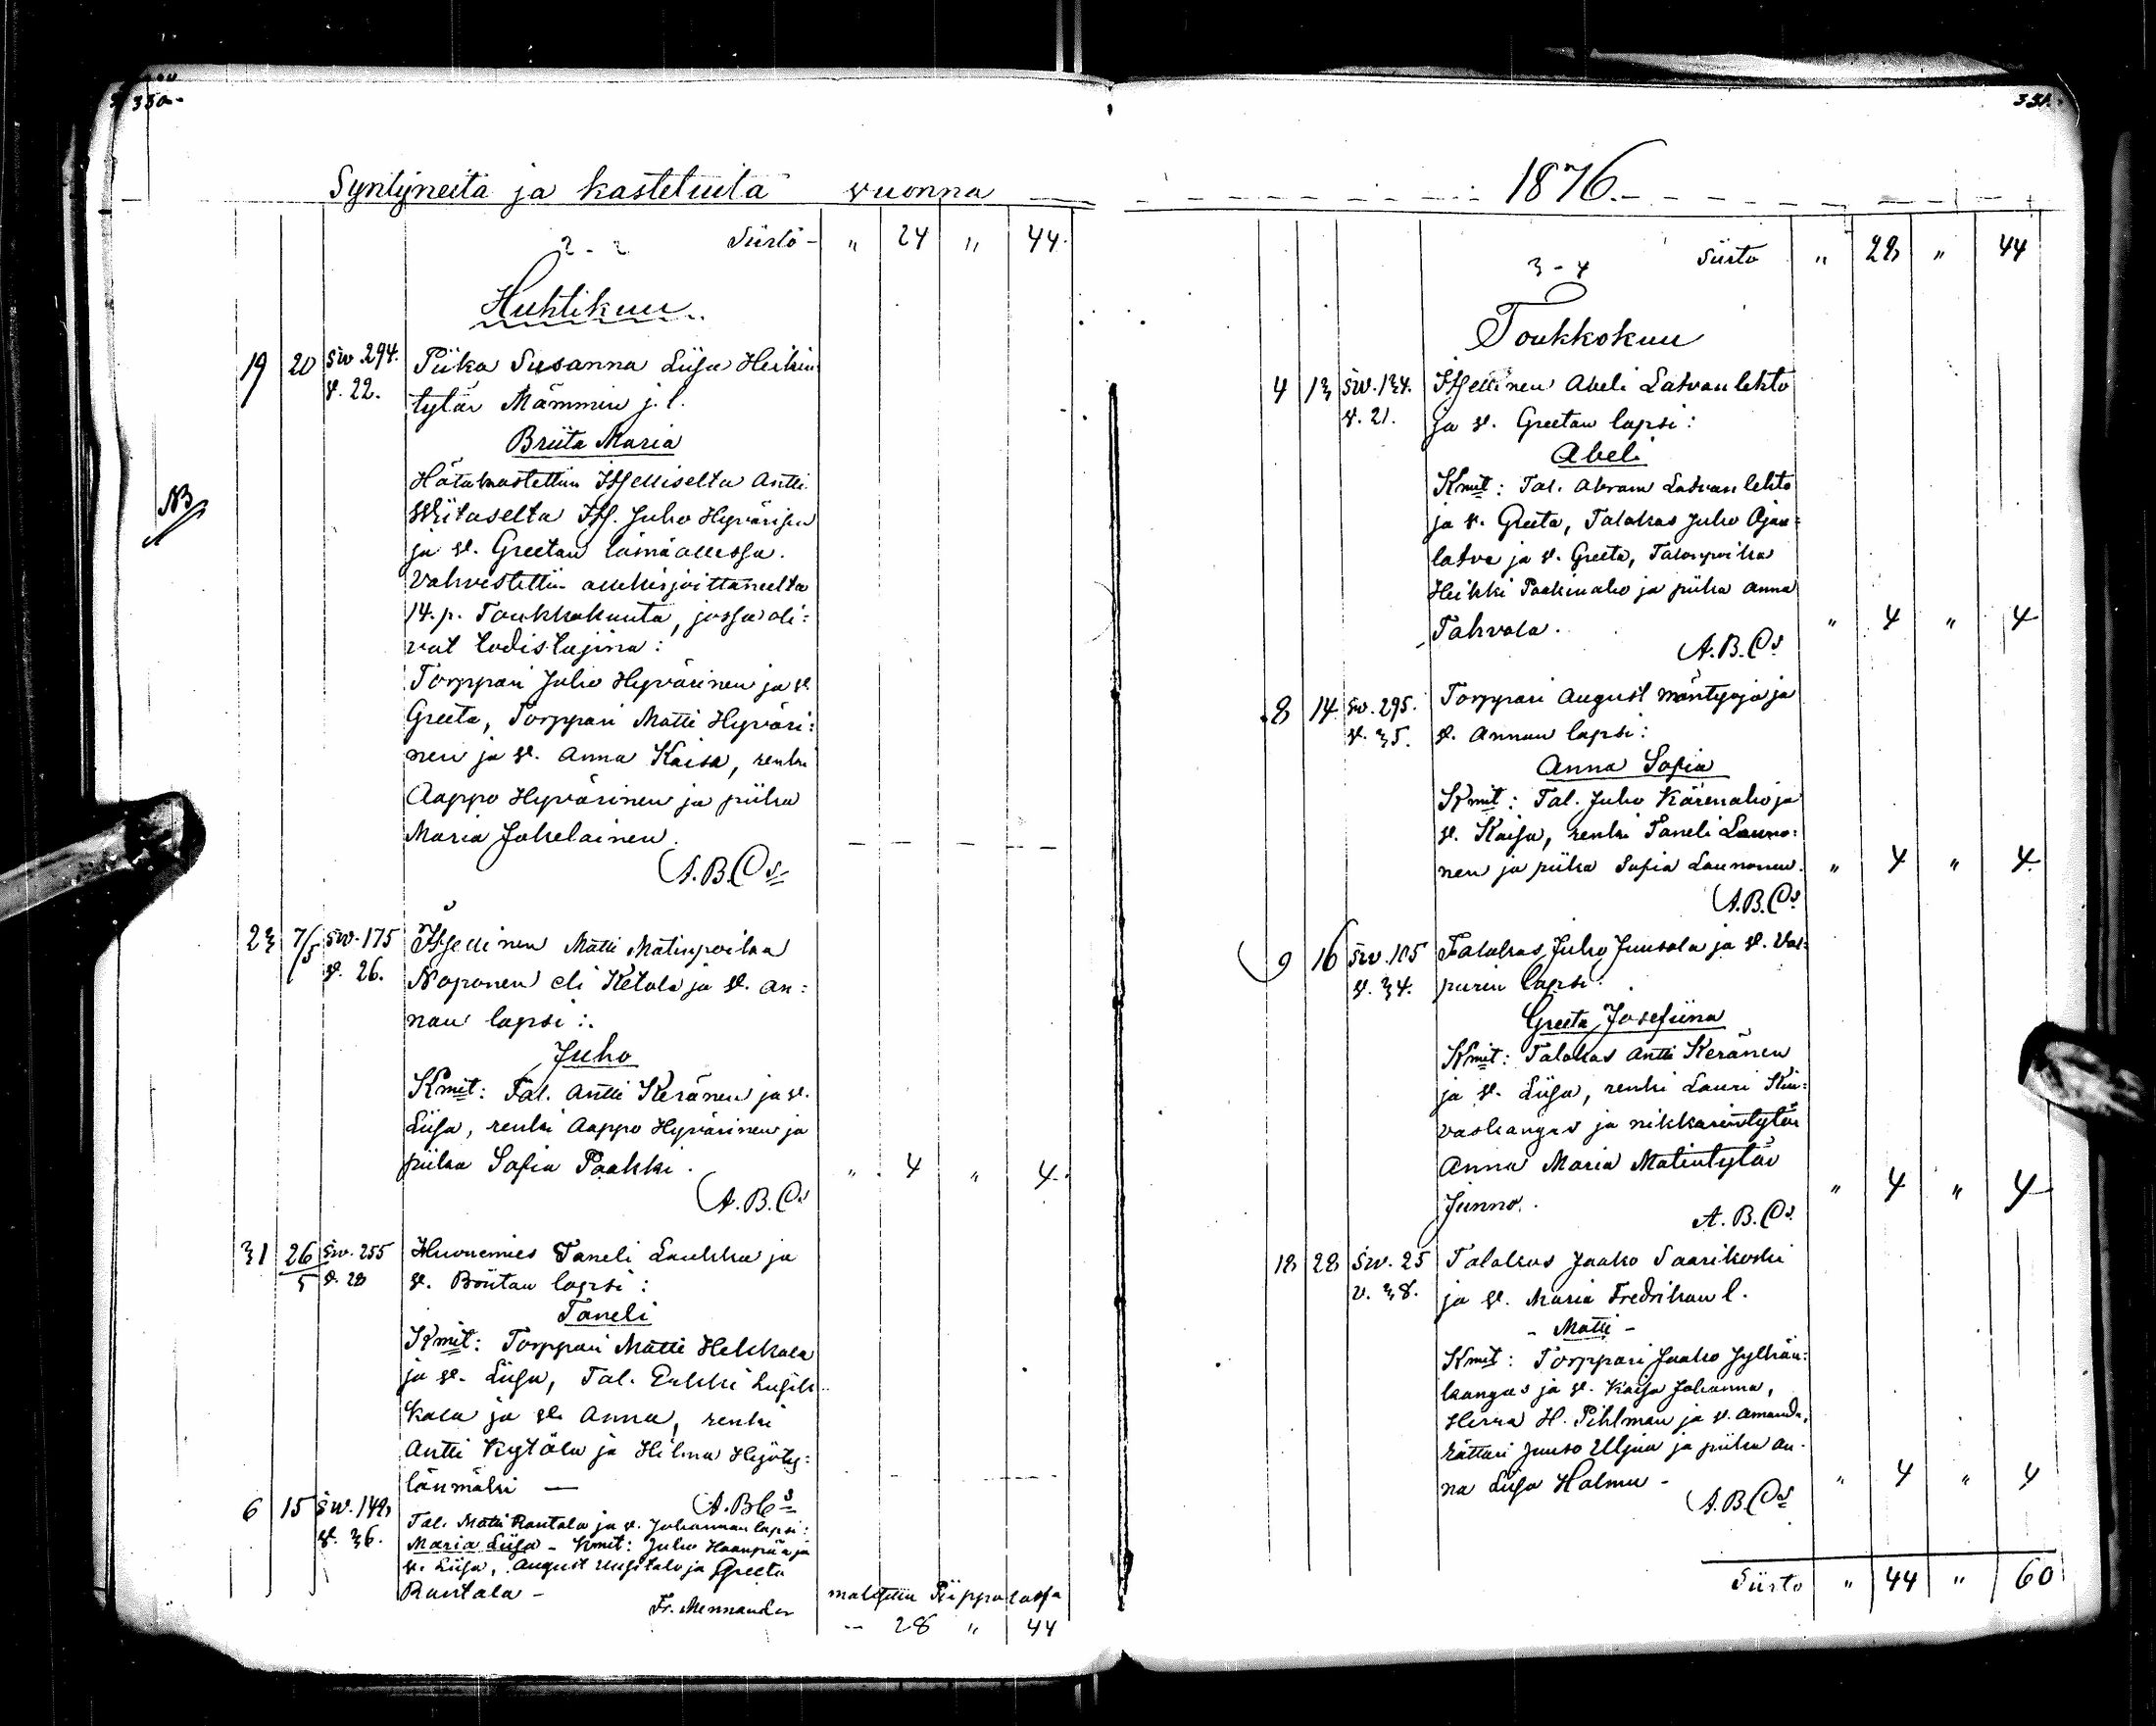 330.
Syntyneitä ja kastetuita vuonna
2 - 2 Siirto - " 24 " 44.
Huhtikuu.
19 20 Siv. 294. Piika Susanna Liisa Heikin
v. 22. tytär Mämmin j. l.
Briita Maria
Hätäkastettiin Itselliseltä Antti
NB
Wiitaselta Its. Juho Hyvärisen
ja v. Greetan läsnäollessa.
Vahvistettiin allekirjoittaneelta
14. p. Toukkokuuta, jossa oli:
vat todistajina:
Torppari Juho Hyvärinen ja v.
Greeta, Torppari Matti Hyväri:
nen ja v. Anna Kaisa, renki
Aappo Hyvärinen ja piika
Maria Jokelainen.
A. B. Cs
23 7/5 Siv. 175 Itsellinen Matti Matinpoika
v. 26. Noponen eli Ketola ja v. An:
nan lapsi:
Juho
Kmit: Tal. Antti Keränen ja v.
Liisa, renki Aappo Hyvärinen ja
piika Sofia Paakki. " 4 " 4.
A. B. Cs
31 26/5 Siv. 255 Huonemies Taneli Laukka ja
v. 28 v. Briitan lapsi:
Taneli
Kmit: Torppari Matti Hekkala
ja v. Liisa, Tal. Erkki
kala ja v. Anna, renki
Antti Kytölä ja Hilma
länmäki —
A. B. Cs
6 15 Siv. 148 Tal. Matti Rantala ja v. Johannan lapsi:
v. 36. Maria Liisa - Kmit: Juho Haanpää ja
v. Liisa, August Uusitalo ja Greeta
Rantala - maksettu Piippolassa
Fr. Mennander
" 28 " 44
331.
1876.
3 - 4 Siirto " 28 " 44
Toukkokuu
4 13 Siv. 134. Itsellinen Abeli Latvanlehto
v. 21. ja v. Greetan lapsi:
Abeli
Kmit: Tal. Abram Latvanlehto
ja v. Greeta, Talokas Juho Ojan:
latva ja v. Greeta, Talonpoika
Heikki Paakinaho ja piika Anna
Tahvola. " 4 " 4
A. B. Cs
8 14 Siv. 295. Torppari August Mäntyoja ja
v. 35. v. Annan lapsi:
Anna Sofia
Kmit: Tal. Juho Kärenaho ja
v. Kaisa, renki Taneli Launo:
nen ja piika Sofia Launonen. " 4 " 4.
A. B. Cs
9 16 Siv. 105 Talokas Juho Juusola ja v. Val:
v. 34. purin lapsi:
Greeta Josefiina
Kmit: Talokas Antti Keränen
ja v. Liisa, renki Lauri Kii:
vaskangas ja nikkarintytär
Anna Maria Matintytär
Junno. " 4 " 4
A. B. Cs
18 28 Siv. 25 Talokas Jaako Saarikoski
v. 38. ja v. Maria Fredrikan l.
- Matti -
Kmit: Torppari Jaako Jylhän:
kangas ja v. Kaisa Johanna,
Herra H. Pihlman ja v. Amanda,
rättäri Juuso Uljua ja piika An-
na Liisa Halmu - " 4 " 4
A. B. Cs
Siirto " 44 " 60